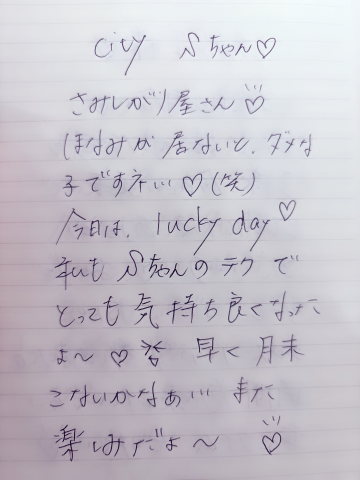 city Sちゃん♡
さみしがり屋さん♡
ほなみが居ないと、ダメな
子ですネ…♡(笑)
今日は、lucky day♡
私もSちゃんのテクで
とっても気持ち良くなった
よ〜♡ 早く月末
こないかなぁ… また
楽しみだよ〜 ♡